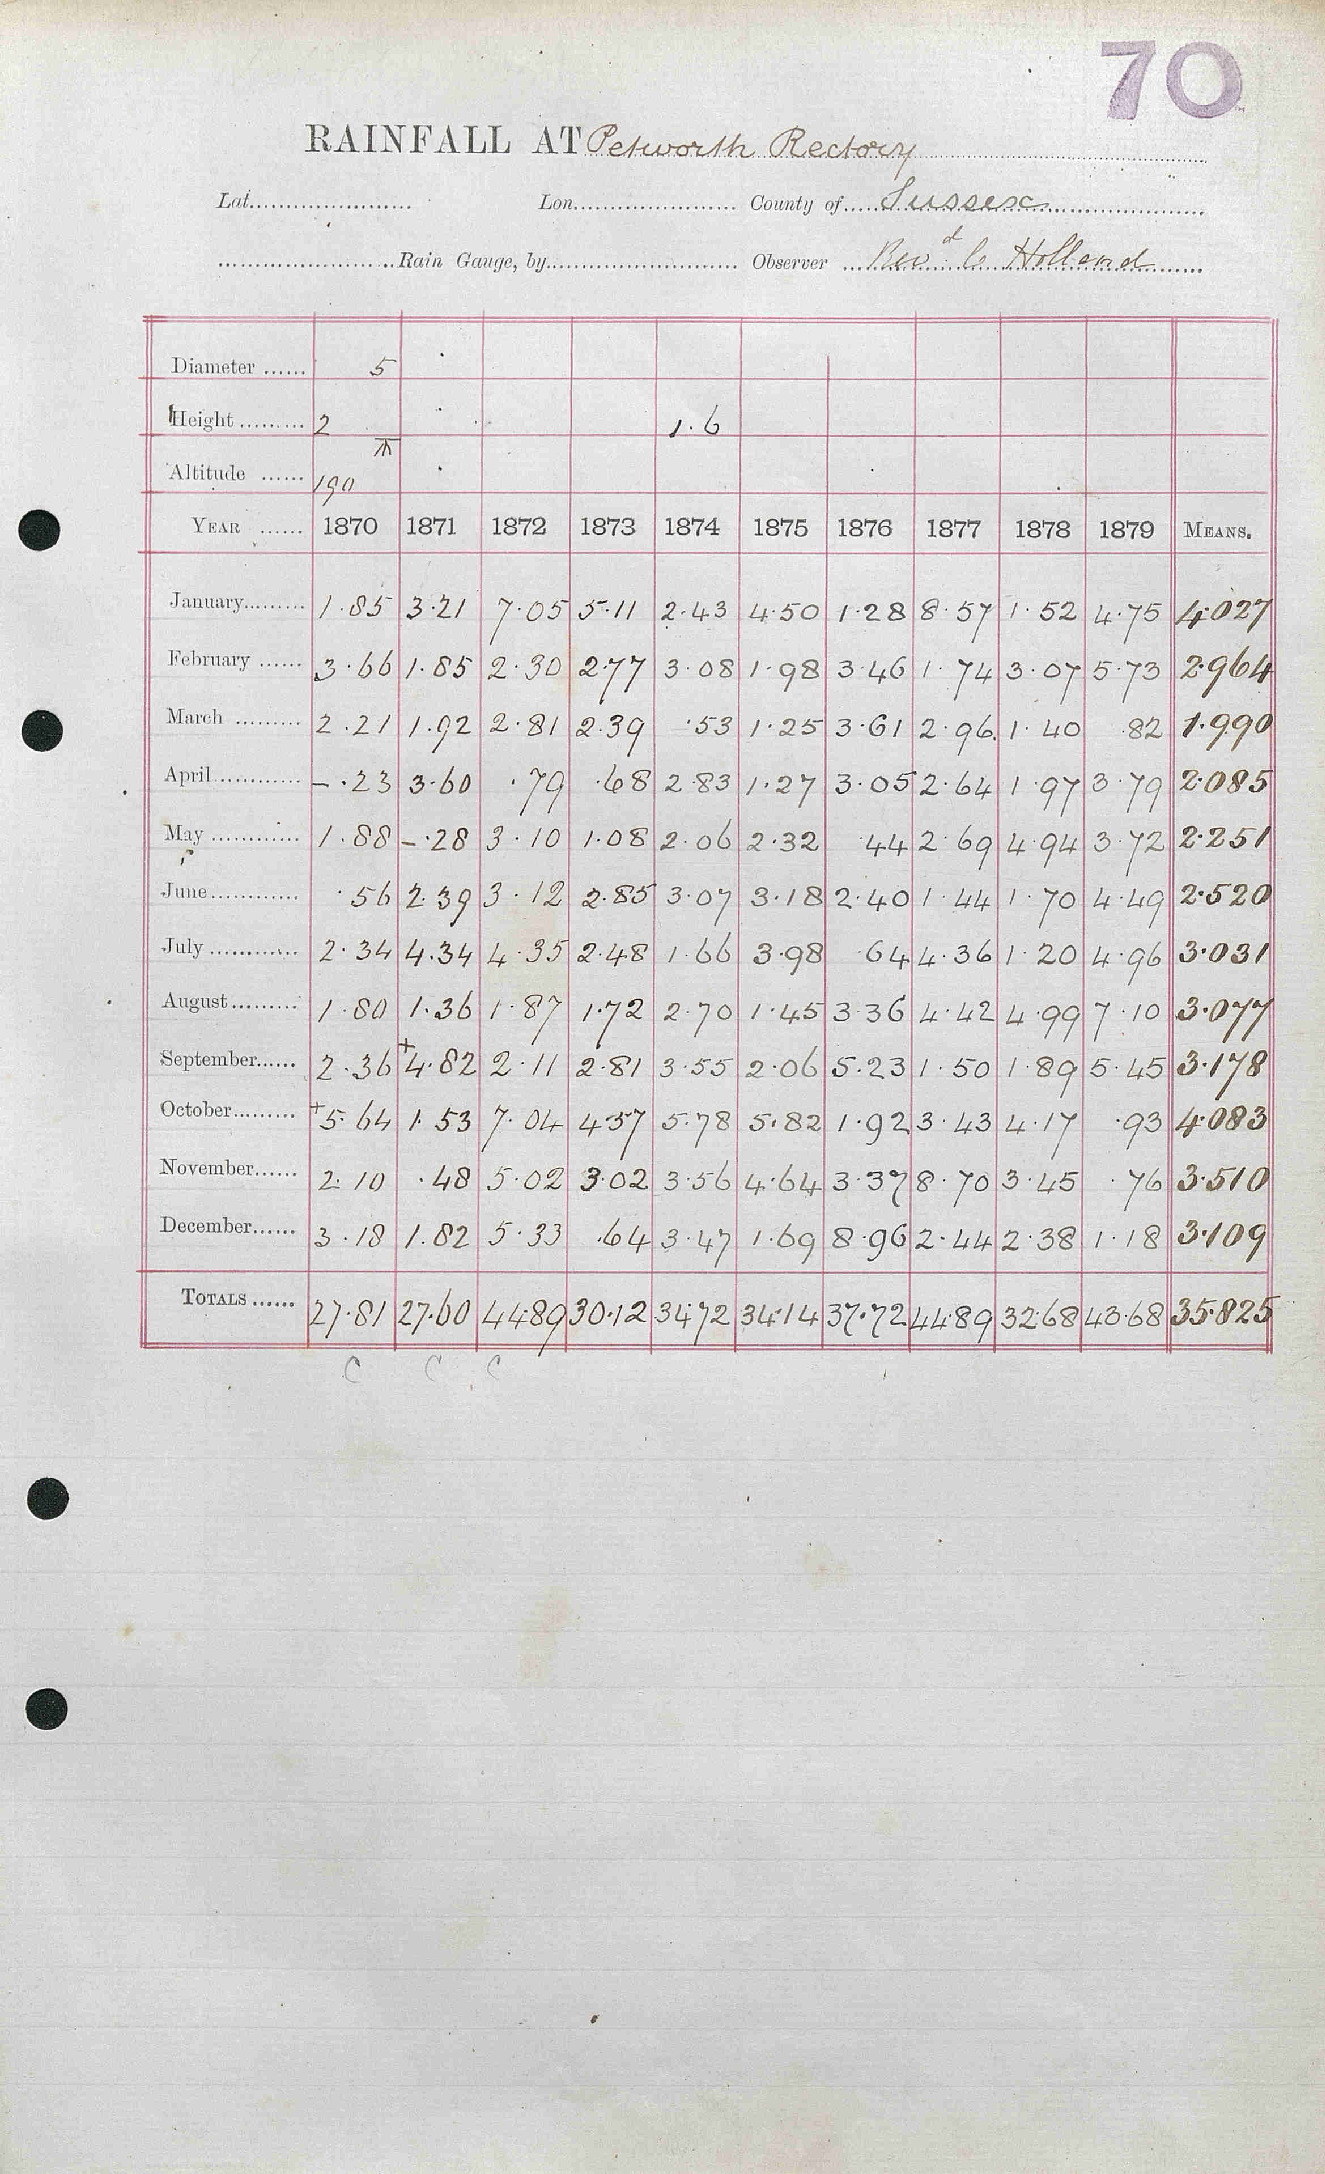 70
RAINFALL AT Petworth Rectory
Lat. Lon. County of Sussex
Rain Gauge, by Observer Revd C Holland
Diameter ...... 5
Height ......... 2 1.6
Altitude ...... 190
YEAR ...... 1870 1871 1872 1873 1874 1875 1876 1877 1878 1879 MEANS.
January......... 1.85 3.21 7.05 5.11 2.43 4.50 1.28 8.57 1.52 4.75 4.027
February ...... 3.66 1.85 2.30 2.77 3.08 1.98 3.46 1.74 3.07 5.73 2.964
March ......... 2.21 1.92 2.81 2.39 .53 1.25 3.61 2.96 1.40 .82 1.990
April............ –.23 3.60 .79 .68 2.83 1.27 3.05 2.64 1.97 3.79 2.085
May ............ 1.88 –.28 3.10 1.08 2.06 2.32 .44 2.69 4.94 3.72 2.251
June............ .56 2.39 3.12 2.85 3.07 3.18 2.40 1.44 1.70 4.49 2.520
July ............ 2.34 4.34 4.35 2.48 1.66 3.98 .64 4.36 1.20 4.96 3.031
August......... 1.80 1.36 1.87 1.72 2.70 1.45 3.36 4.42 4.99 7.10 3.077
September...... 2.36 +4.82 2.11 2.81 3.55 2.06 5.23 1.50 1.89 5.45 3.178
October......... +5.64 1.53 7.04 4.57 5.78 5.82 1.92 3.43 4.17 .93 4.083
November...... 2.10 .48 5.02 3.02 3.56 4.64 3.37 8.70 3.45 .76 3.510
December...... 3.18 1.82 5.33 .64 3.47 1.69 8.96 2.44 2.38 1.18 3.109
TOTALS ...... 27.81 27.60 44.89 30.12 34.72 34.14 37.72 44.89 32.68 43.68 35.825
C C C